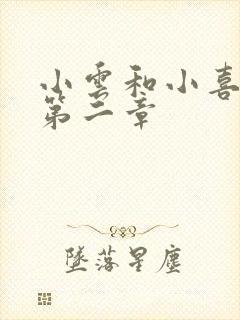 小雲和小喜
第二章
墜落星塵